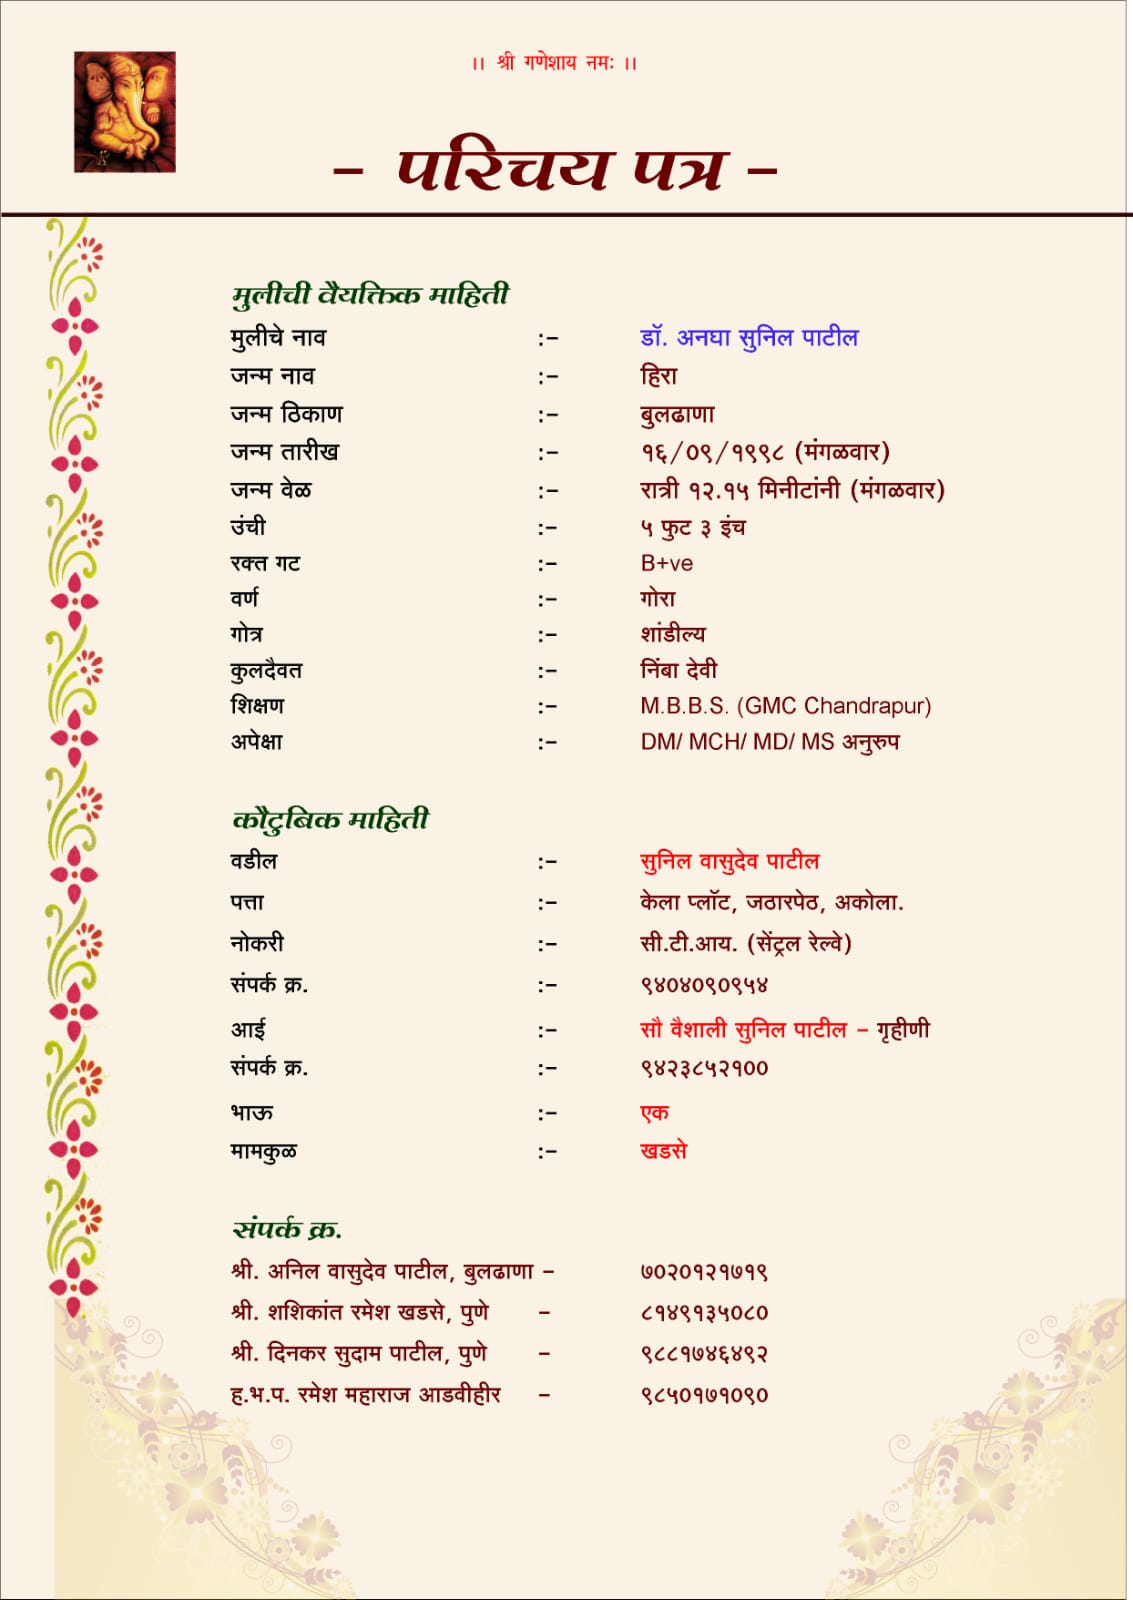 ।। श्री गणेशाय नमः ।।
– परिचय पत्र –
मुलीची वैयक्तिक माहिती
मुलीचे नाव :– डॉ. अनघा सुनिल पाटील
जन्म नाव :– हिरा
जन्म ठिकाण :– बुलढाणा
जन्म तारीख :– १६/०९/१९९८ (मंगळवार)
जन्म वेळ :– रात्री १२.१५ मिनीटांनी (मंगळवार)
उंची :– ५ फुट ३ इंच
रक्त गट :– B+ve
वर्ण :– गोरा
गोत्र :– शांडील्य
कुलदैवत :– निंबा देवी
शिक्षण :– M.B.B.S. (GMC Chandrapur)
अपेक्षा :– DM/ MCH/ MD/ MS अनुरुप
कौटुबिक माहिती
वडील :– सुनिल वासुदेव पाटील
पत्ता :– केला प्लॉट, जठारपेठ, अकोला.
नोकरी :– सी.टी.आय. (सेंट्रल रेल्वे)
संपर्क क्र. :– ९४०४०९०९५४
आई :– सौ वैशाली सुनिल पाटील – गृहीणी
संपर्क क्र. :– ९४२३८५२१००
भाऊ :– एक
मामकुळ :– खडसे
संपर्क क्र.
श्री. अनिल वासुदेव पाटील, बुलढाणा – ७०२०१२१७१९
श्री. शशिकांत रमेश खडसे, पुणे – ८१४९१३५०८०
श्री. दिनकर सुदाम पाटील, पुणे – ९८८१७४६४९२
ह.भ.प. रमेश महाराज आडवीहीर – ९८५०१७१०९०